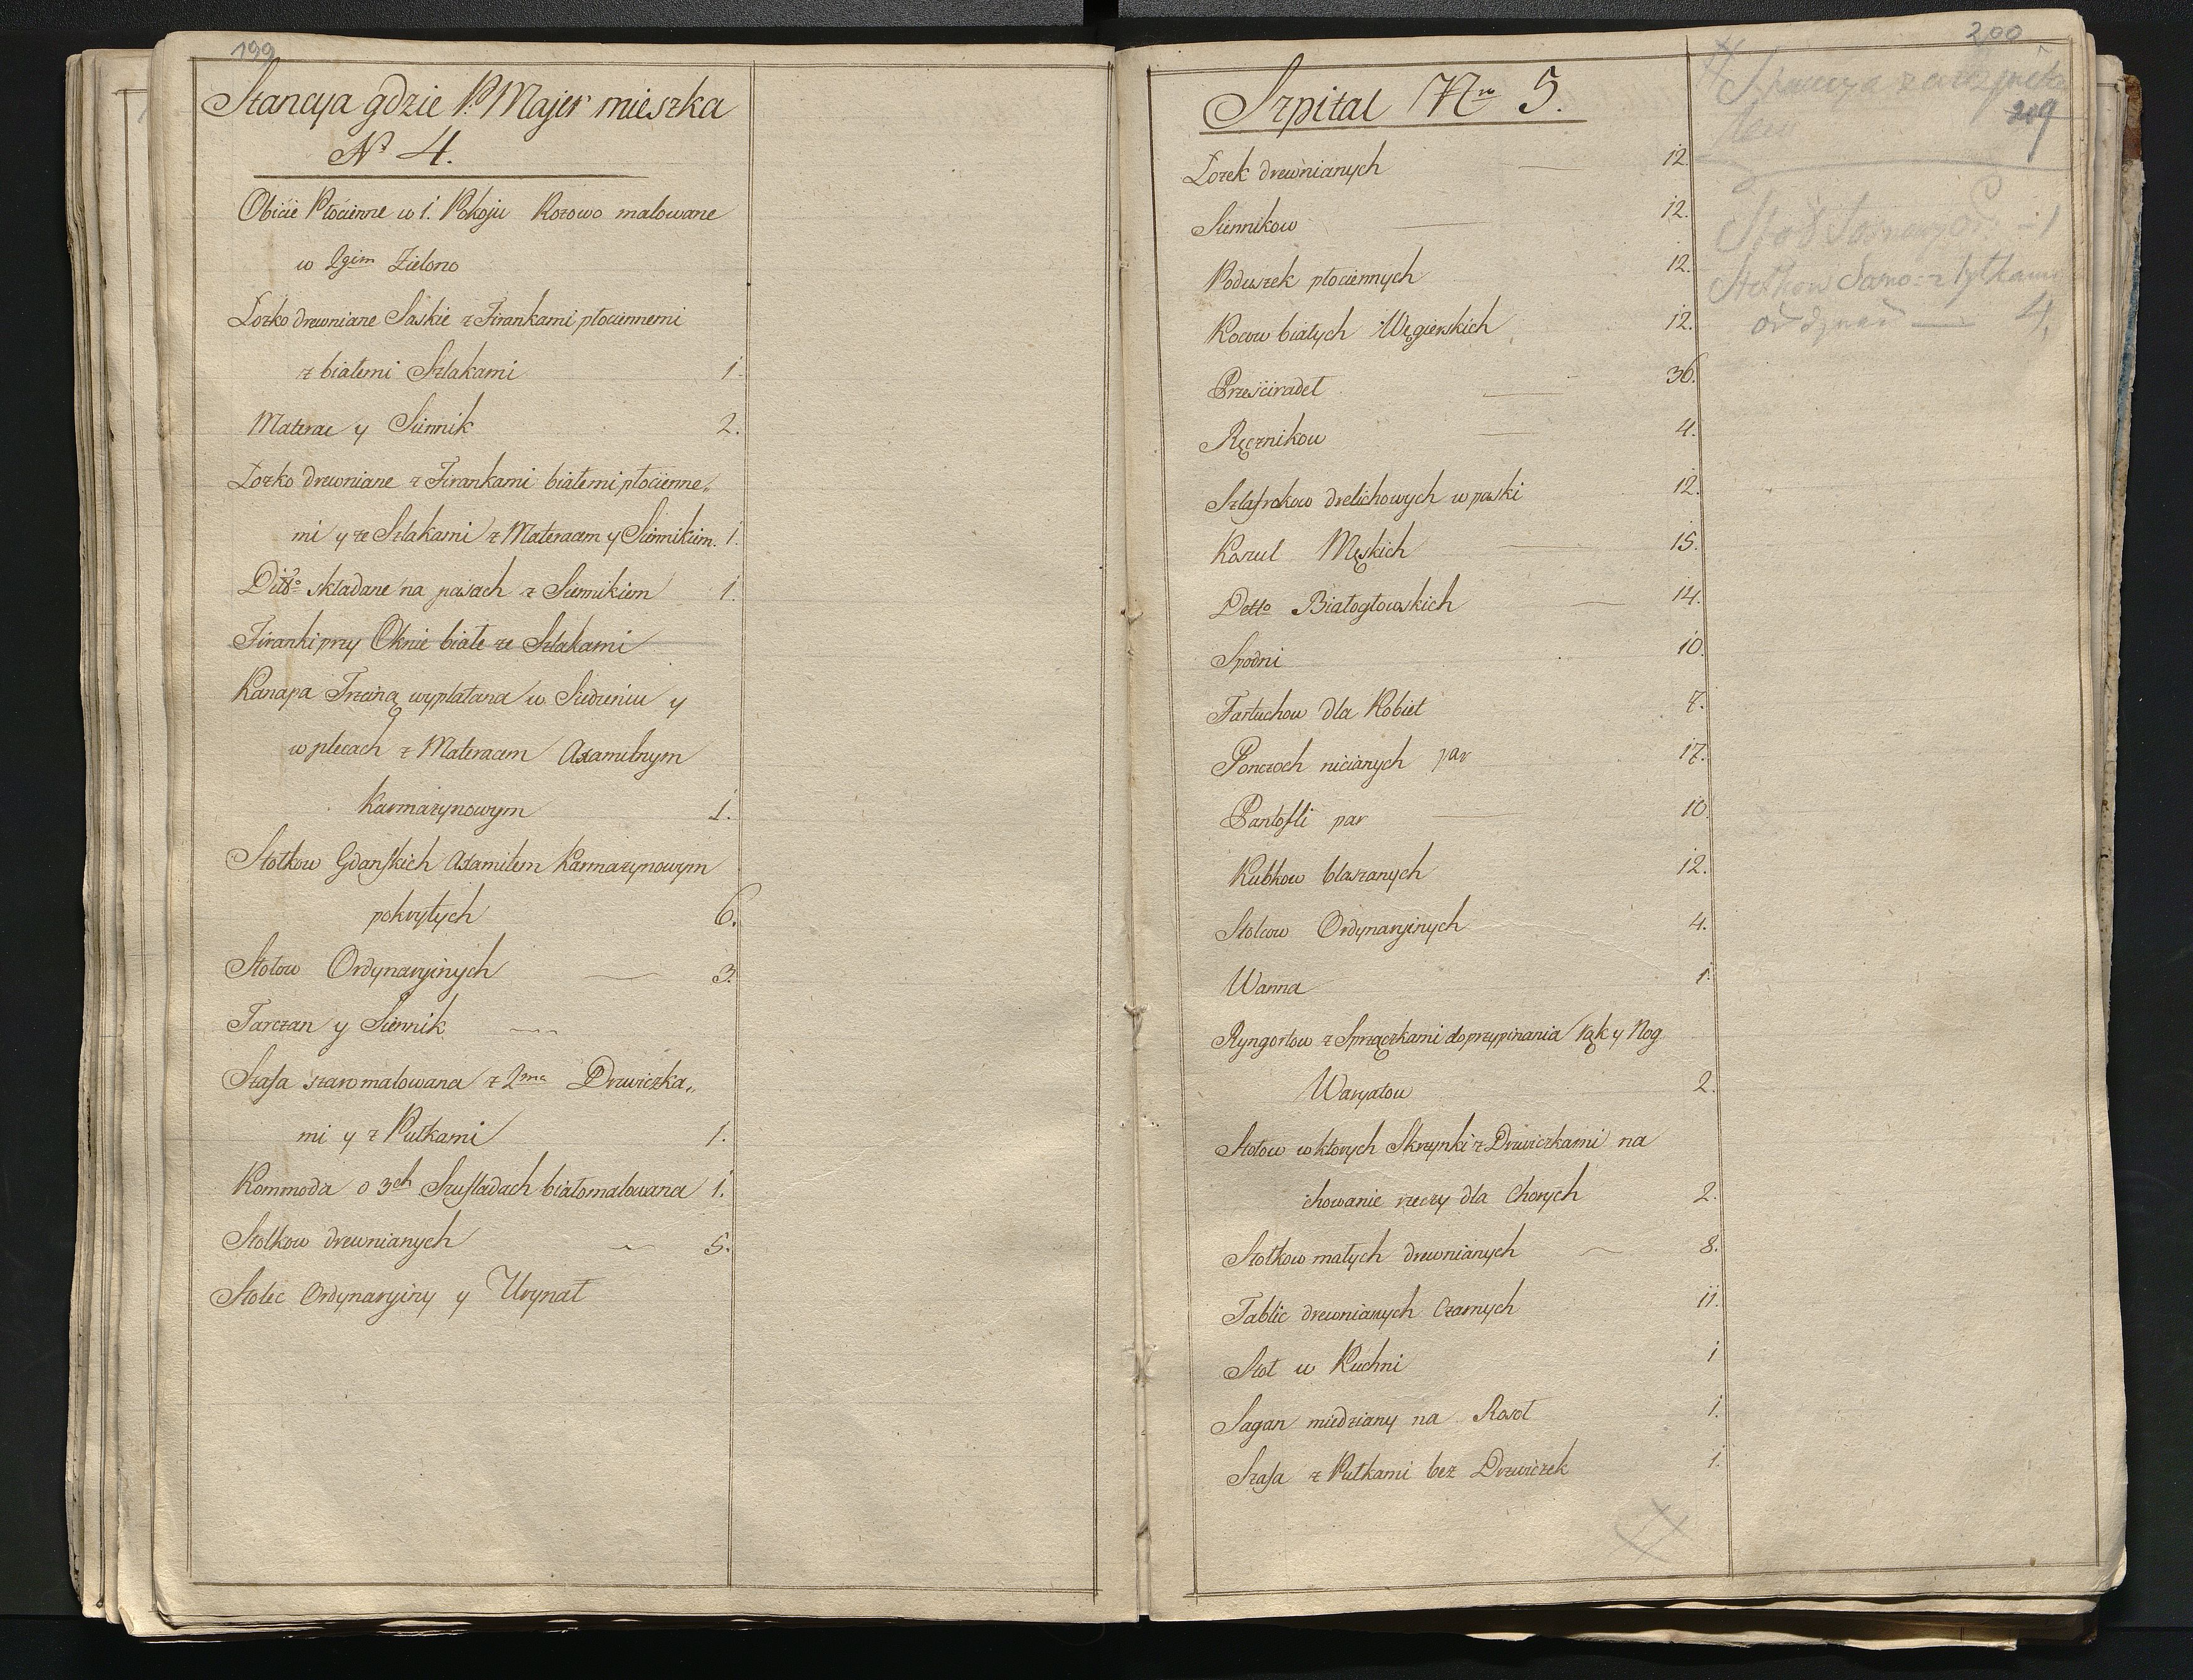 199
Stancya gdzie P. Majer mieszka
No 4.
Obicie Płócienne w 1. Pokoju Rozowo malowane
w 2gim Zielono
Lozko drewniane Saskie z Firankami płociennemi
z białemi Szlakami 1.
Materac y Siennik 2.
Lozko drewniane z Firankami białemi płocienne„
mi y ze Szlakami z Materacem y Siennikiem. 1.
Ditto składane na pasach z Siennikiem 1.
Firanki przy Oknie białe ze Szlakami
Kanapa Trzciną wyplatana w Siedzeniu y
w plecach z Materacem Axamitnym
Karmazynowym 1.
Stołkow Gdanskich Axamitem Karmazynowym
pokrytych 6.
Stołow Ordynaryinych 3.
Tarczan y Siennik
Szafa szaro malowana z 2ma Drzwiczka„
mi y z Pułkami 1.
Kommoda o 3ch Szufladach biało malowana 1.
Stołkow drewnianych 5.
Stolec Ordynaryiny y Urynał
200
Szpital Nro 5.
209
Lozek drewnianych 12.
Siennikow 12.
Poduszek płociennych 12.
Kocow białych Węgierskich 12.
Prześciradeł 36.
Ręcznikow 4.
Szlafrokow drelichowych w paski 12.
Koszul Męskich 15.
Detto Białogłowskich 14.
Spodni 10.
Fartuchow dla Kobiet 7.
Ponczoch nicianych par 17.
Pantofli par 10.
Kubkow blaszanych 12.
Stolcow Ordynaryinych 4.
Wanna 1.
Ryngortow z Sprzączkami do przypinania rąk y Nog
Waryatow 2.
Stołow w ktorych Skrzynki z Drzwiczkami na
chowanie rzeczy dla Chorych 2.
Stołkow małych drewnianych 8.
Tablic drewnianych Czarnych 11.
Stoł w Kuchni 1
Sagan miedziany na Rosoł 1.
Szafa z Pułkami bez Drzwiczek 1.
Stancya
Stoł Sosnowy 1
Stołkow Sosno: z tyłkami
ordynar 4.